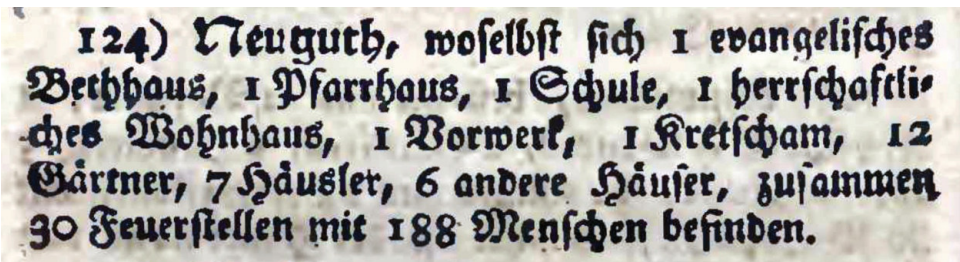 124) Neuguth, woſelbſt ſich 1 evangeliſches
Bethhaus, 1 Pfarrhaus, 1 Schule, 1 herrſchaftli-
ches Wohnhaus, 1 Vorwerk, 1 Kretſcham, 12
Gärtner, 7 Häusler, 6 andere Häuſer, zuſammen
30 Feuerſtellen mit 188 Menſchen befinden.